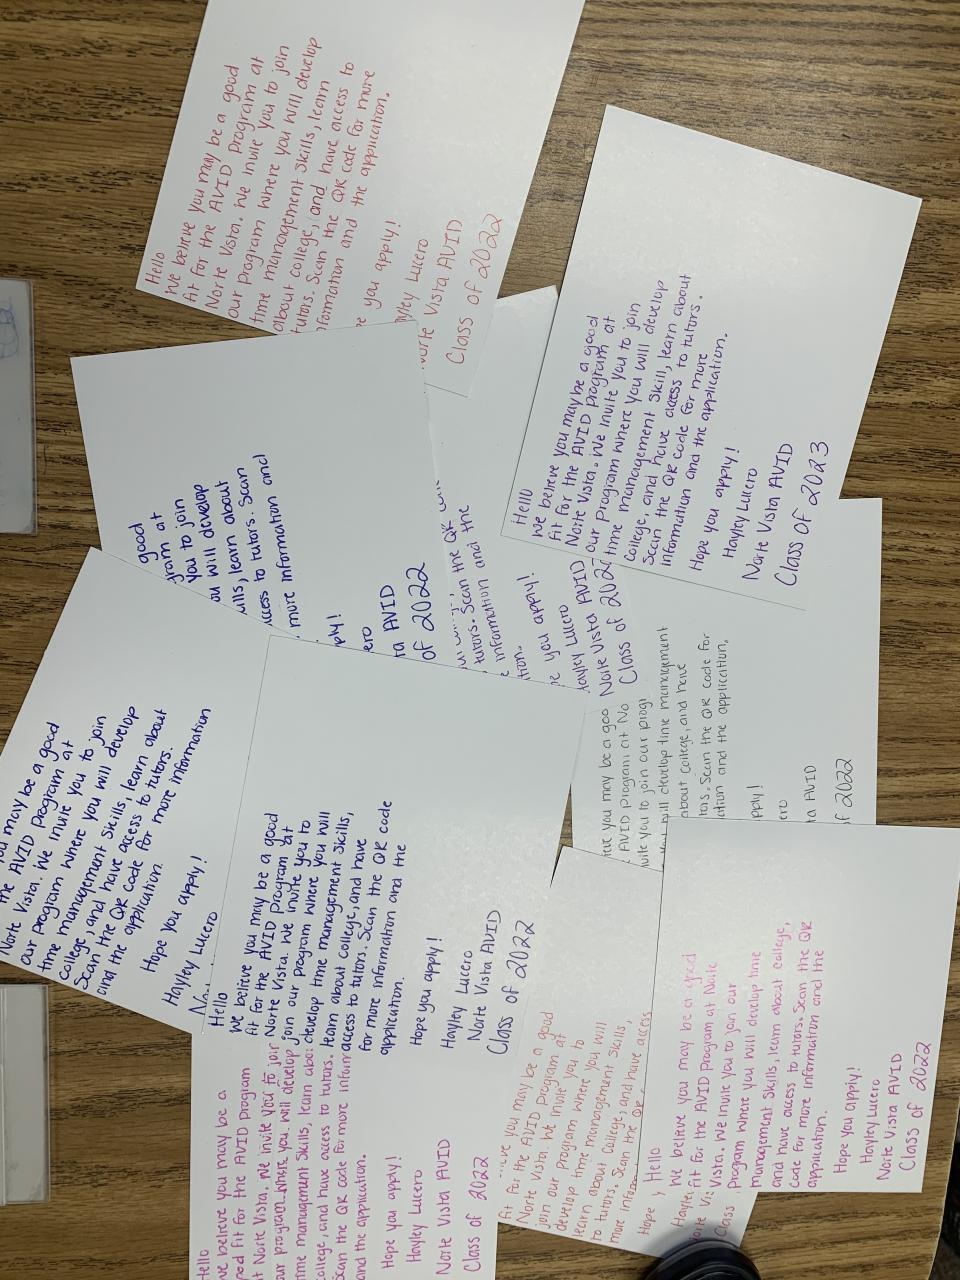 Hello
We believe you may be a good
fit for the AVID Program at
Norte Vista. We invite you to join
our program where you will develop
time management skills, learn
about college, and have access to
tutors. Scan the QR code for more
nformation and the application.
e you apply!
ayley Lucero
Norte Vista AVID
Class of 2022
Hello
We believe you may be a good
fit for the AVID program at
Norte Vista. We invite you to join
our program where you will develop
time management skill, learn about
college, and have access to tutors.
Scan the QR code for more
information and the application.
Hope you apply!
Hayley Lucero
Norte Vista AVID
Class of 2023
good
gram at
you to join
ou will develop
ills, learn about
access to tutors. Scan
more information and
pply!
ero
ta AVID
of 2022
tutors. Scan the QR
information and the
tion.
e you apply!
Hayley Lucero
Norte Vista AVID
Class of 2022
ieve you may be a goo
AVID program at No
nvite you to join our progr
will develop time management
about college, and have
tors. Scan the QR code for
ation and the application.
pply!
ero
ta AVID
of 2022
you may be a good
the AVID Program at
Norte Vista. We invite you to join
our program where you will develop
time management skills, learn about
college, and have access to tutors.
Scan the QR Code for more information
and the application.
Hope you apply!
Hayley Lucero
Hello
We believe you may be a good
fit for the AVID program at
Norte Vista. We invite you to
join our program where you will
develop time management skills,
learn about college, and have
access to tutors. Scan the QR code
for more information and the
application.
Hope you apply!
Hayley Lucero
Norte Vista AVID
Class of 2022
Hello
we believe you may be a
good fit for the AVID Program
at Norte Vista. We invite you to join
our program where you will develop
time management skills, learn abo
college, and have access to tutors.
Scan the QR code for more inform
and the application.
Hope you apply!
Hayley Lucero
Norte Vista AVID
Class of 2022
ieve you may be a good
fit for the AVID program at
Norte Vista. We invite you to
join our program where you will
develop time management skills,
learn about college, and have access
to tutors. Scan the QR
more infor
Hope y
Hayle
Norte Vis
Class
Hello
We believe you may be a good
fit for the AVID program at Norte
Vista. We invite you to join our
program where you will develop time
management skills, learn about college,
and have access to tutors. Scan the QR
code for more information and the
application.
Hope you apply!
Hayley Lucero
Norte Vista AVID
Class of 2022